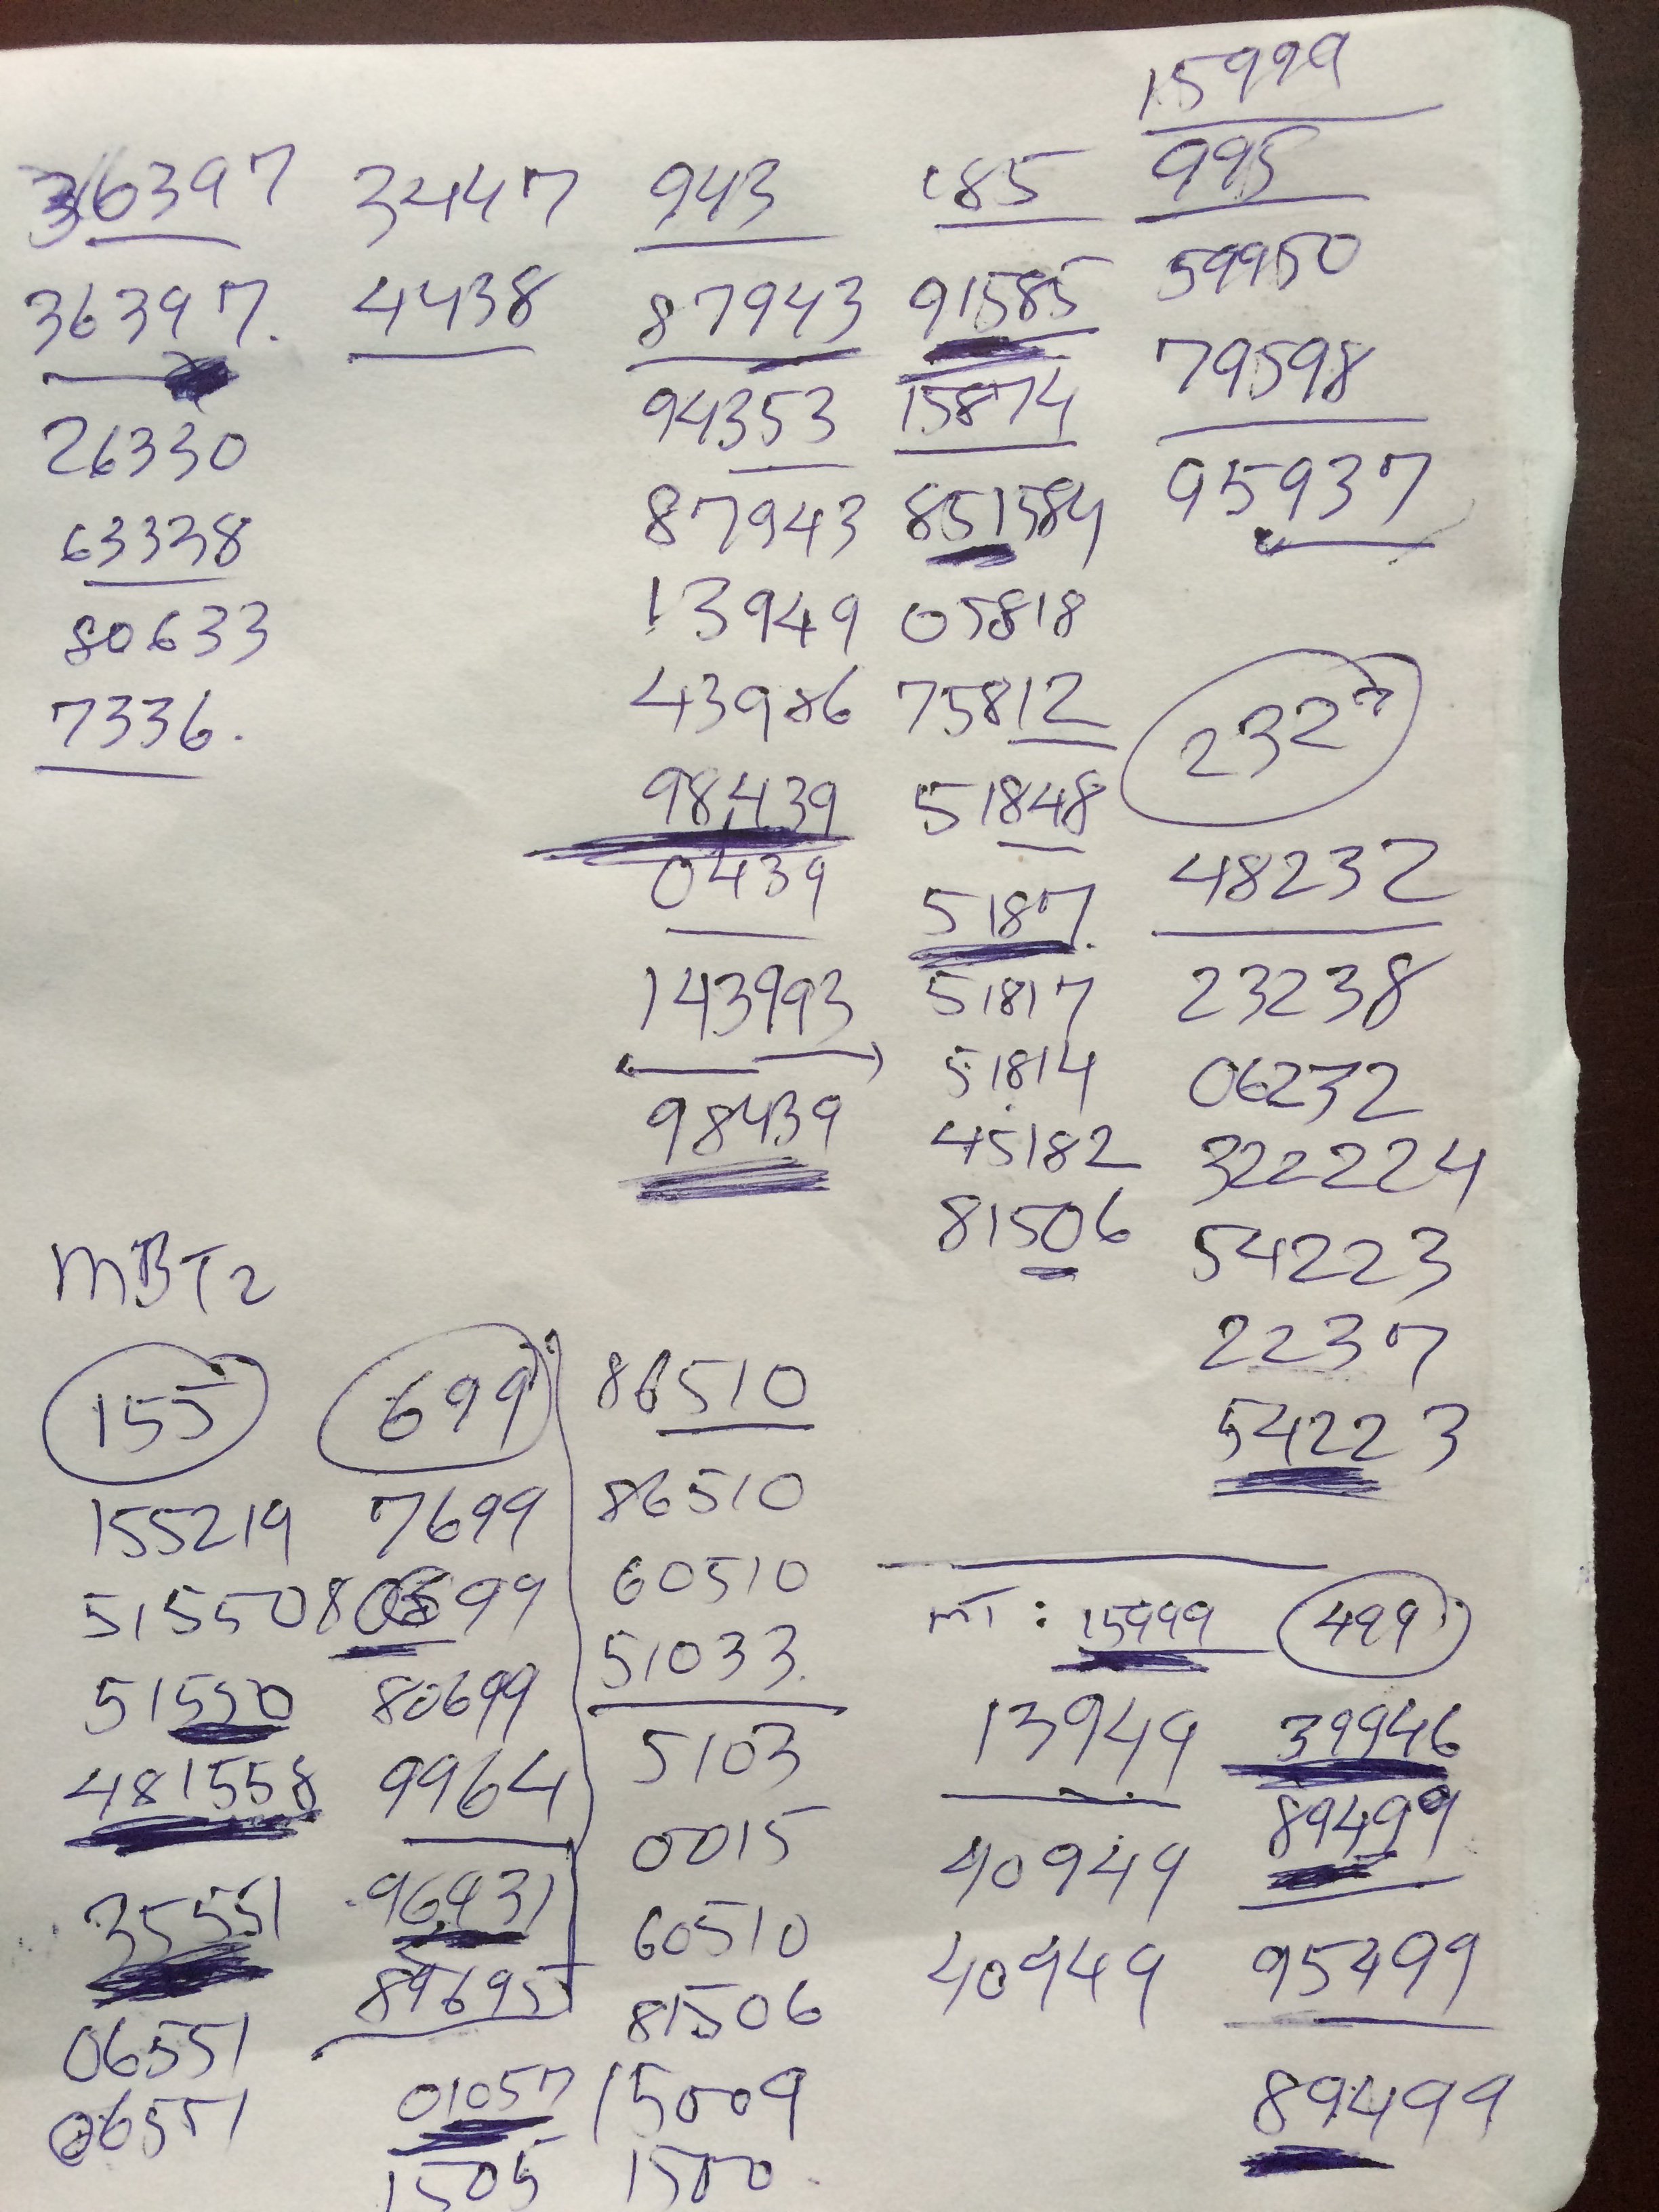 15999
36397 3447 943 185 995
36397. 4438 87943 91585 59950
26330 94353 15874 79598
63338 87943 851584 95937
80633 13949 05818
7336. 43986 75812 232
98439 51848
0439 5187. 48232
143993 51817 23238
98439 51814 06232
45182 322224
81506 54223
MBT2 2237
155 699 86510 54223
155219 7699 86510
51550 80699 60510 MT: 15999 499
51550 80699 51033. 13949 39946
481558 9964 5103 40949 89499
35551 96431 0015 40949 95499
06551 89695 60510 89499
06551 01057 81506
1505 15009
1500.